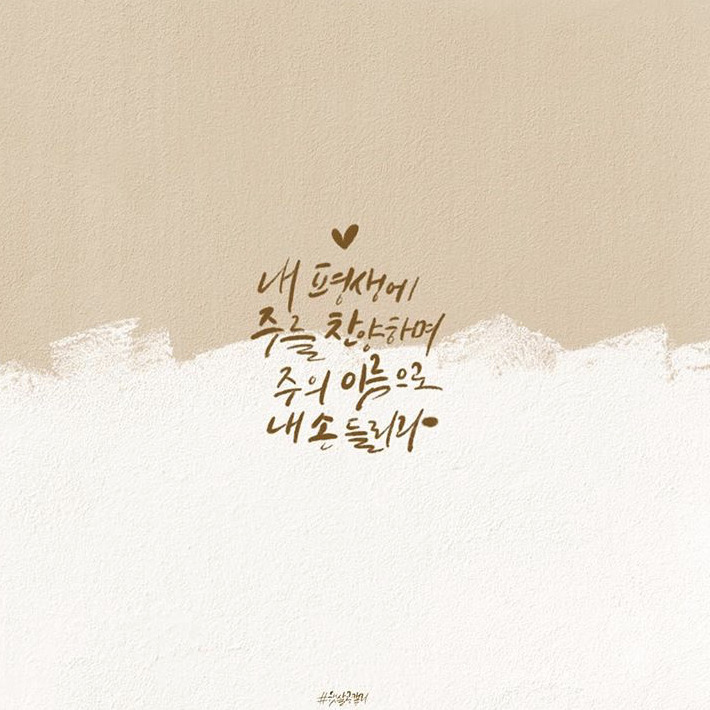 내 평생에
주를 찬양하며
주의 이름으로
내 손 들리라